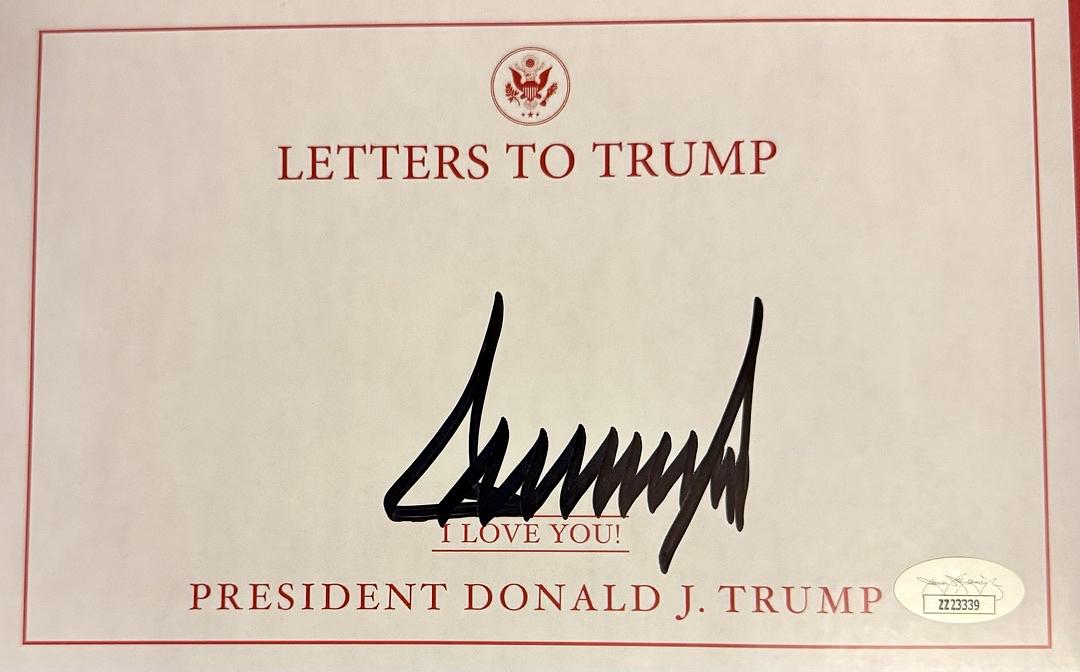 LETTERS TO TRUMP
I LOVE YOU!
PRESIDENT DONALD J. TRUMP
ZZ23339